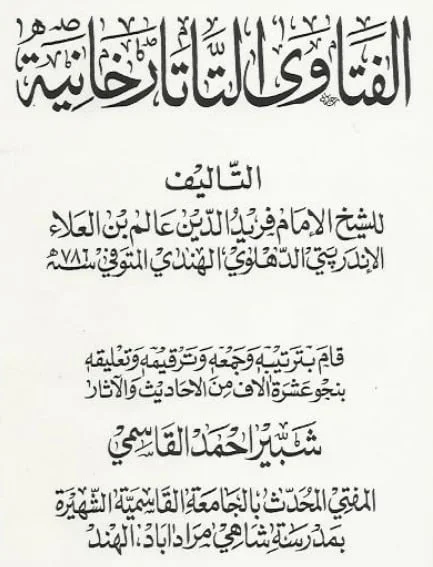 الفتاوى التاتارخانية
التأليف
للشيخ الإمام فريد الدين عالم بن العلاء
الإندربتي الدهلوي الهندي المتوفى سنة ٧٨٦ھ
قام بترتيبه وجمعه وترقيمه وتعليقه
بنحو عشرة آلاف من الأحاديث والآثار
شبير احمد القاسمي
المفتي المحدث بالجامعة القاسمية الشهيرة
بمدرسة شاهي مراداباد، الهند